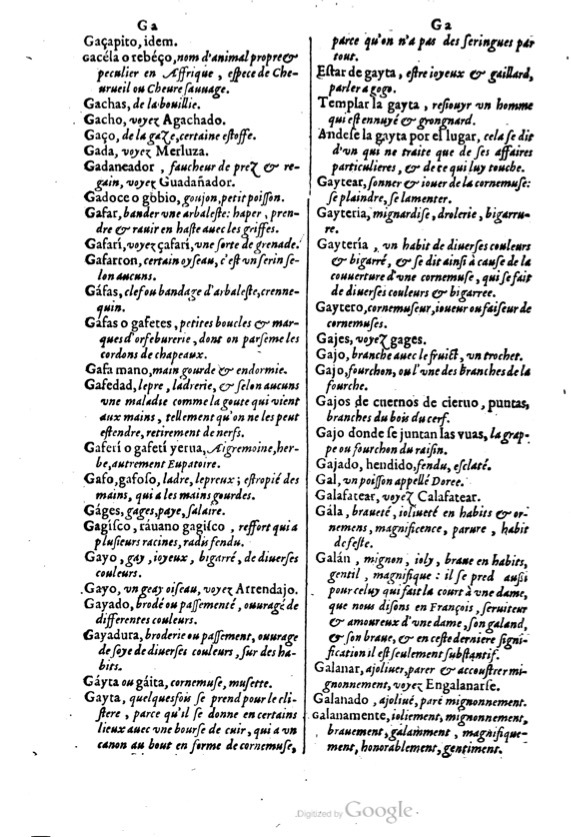 Ga
Gaçapito, idem.
Gacéla o rebéço, nom d'animal propre &
peculier en Affrique, espece de Che-
ureuil ou Cheure sauuage.
Gachas, de la bouillie.
Gacho, voyez Agachado.
Gaço, de la gaze, certaine estoffe.
Gada, voyez Merluza.
Gadaneador, faucheur de prez & re-
gain, voyez Guadañador.
Gadoce o gobio, goujon, petit poisson.
Gafar, bander vne arbaleste: haper, pren-
dre & rauir en haste auec les griffes.
Gafarí, voyez çafari, vne sorte de grenade.
Gafarron, certain oyseau, c'est vn serin se-
lon aucuns.
Gáfas, clef ou bandage d'arbaleste, crenne-
quin.
Gáfas o gafetes, petites boucles & mar-
ques d'orfeburerie, dont on parseme les
cordons de chapeaux.
Gafa mano, main gourde & endormie.
Gafedad, lepre, ladrerie, & selon aucuns
vne maladie comme la goute qui vient
aux mains, tellement qu'on ne les peut
estendre, retirement de nerfs.
Gaferí o gafetí yerua, Aigremoine, her-
be, autrement Eupatoire.
Gafo, gafoso, ladre, lepreux; estropié des
mains, qui a les mains gourdes.
Gáges, gages, paye, salaire.
Gagisco, rauano gagisco, reffort qui a
plusieurs racines, radis fendu.
Gayo, gay, ioyeux, bigarré, de diuerses
couleurs.
Gayo, vn geay oiseau, voyez Arrendajo.
Gayado, brodé ou passementé, ouuragé de
differentes couleurs.
Gayadura, broderie ou passement, ouurage
de soye de diuerses couleurs, sur des ha-
bits.
Gáyta ou gáita, cornemuse, musette.
Gayta, quelquesfois se prend pour le cli-
stere, parce qu'il se donne en certains
lieux auec vne bourse de cuir, qui a vn
canon au bout en forme de cornemuse,
Ga
parce qu'on n'a pas des seringues par
tout.
Estar de gayta, estre ioyeux & gaillard,
parler a gogo.
Templar la gayta, resiouyr vn homme
qui est ennuyé & grongnard.
Andese la gayta por el lugar, cela se dit
d'vn qui ne traite que de ses affaires
particulieres, & de ce qui luy touche.
Gaytear, sonner & iouer de la cornemuse:
se plaindre, se lamenter.
Gayteria, mignardise, drolerie, bigarru-
re.
Gaytería, vn habit de diuerses couleurs
& bigarré, & se dit ainsi à cause de la
couuerture d'vne cornemuse, qui se fait
de diuerses couleurs & bigarree.
Gaytero, cornemuseur, ioueur ou faiseur de
cornemuses.
Gajes, voyez gages.
Gajo, branche auec le fruict, vn trochet.
Gajo, fourchon, ou l'vne des branches de la
fourche.
Gajos de cuernos de cieruo, puntas,
branches du bois du cerf.
Gajo donde se juntan las vuas, la grap-
pe ou fourchon du raisin.
Gajado, hendido, fendu, esclaté.
Gal, vn poisson appellé Doree.
Galafatear, voyez Calafatear.
Gála, braueté, ioliueté en habits & or-
nemens, magnificence, parure, habit
de feste.
Galán, mignon, ioly, braue en habits,
gentil, magnifique: il se pred aussi
pour celuy qui fait la court à vne dame,
que nous disons en François, seruiteur
& amoureux d'vne dame, son galand,
& son braue, & en ceste derniere signi-
fication il est seulement substantif.
Galanar, ajoliuer, parer & accoustrer mi-
gnonnement, voyez Engalanarse.
Galanado, ajoliué, paré mignonnement.
Galanamente, ioliement, mignonnement,
brauement, galamment, magnifique-
ment, honorablement, gentiment.
Digitized by Google